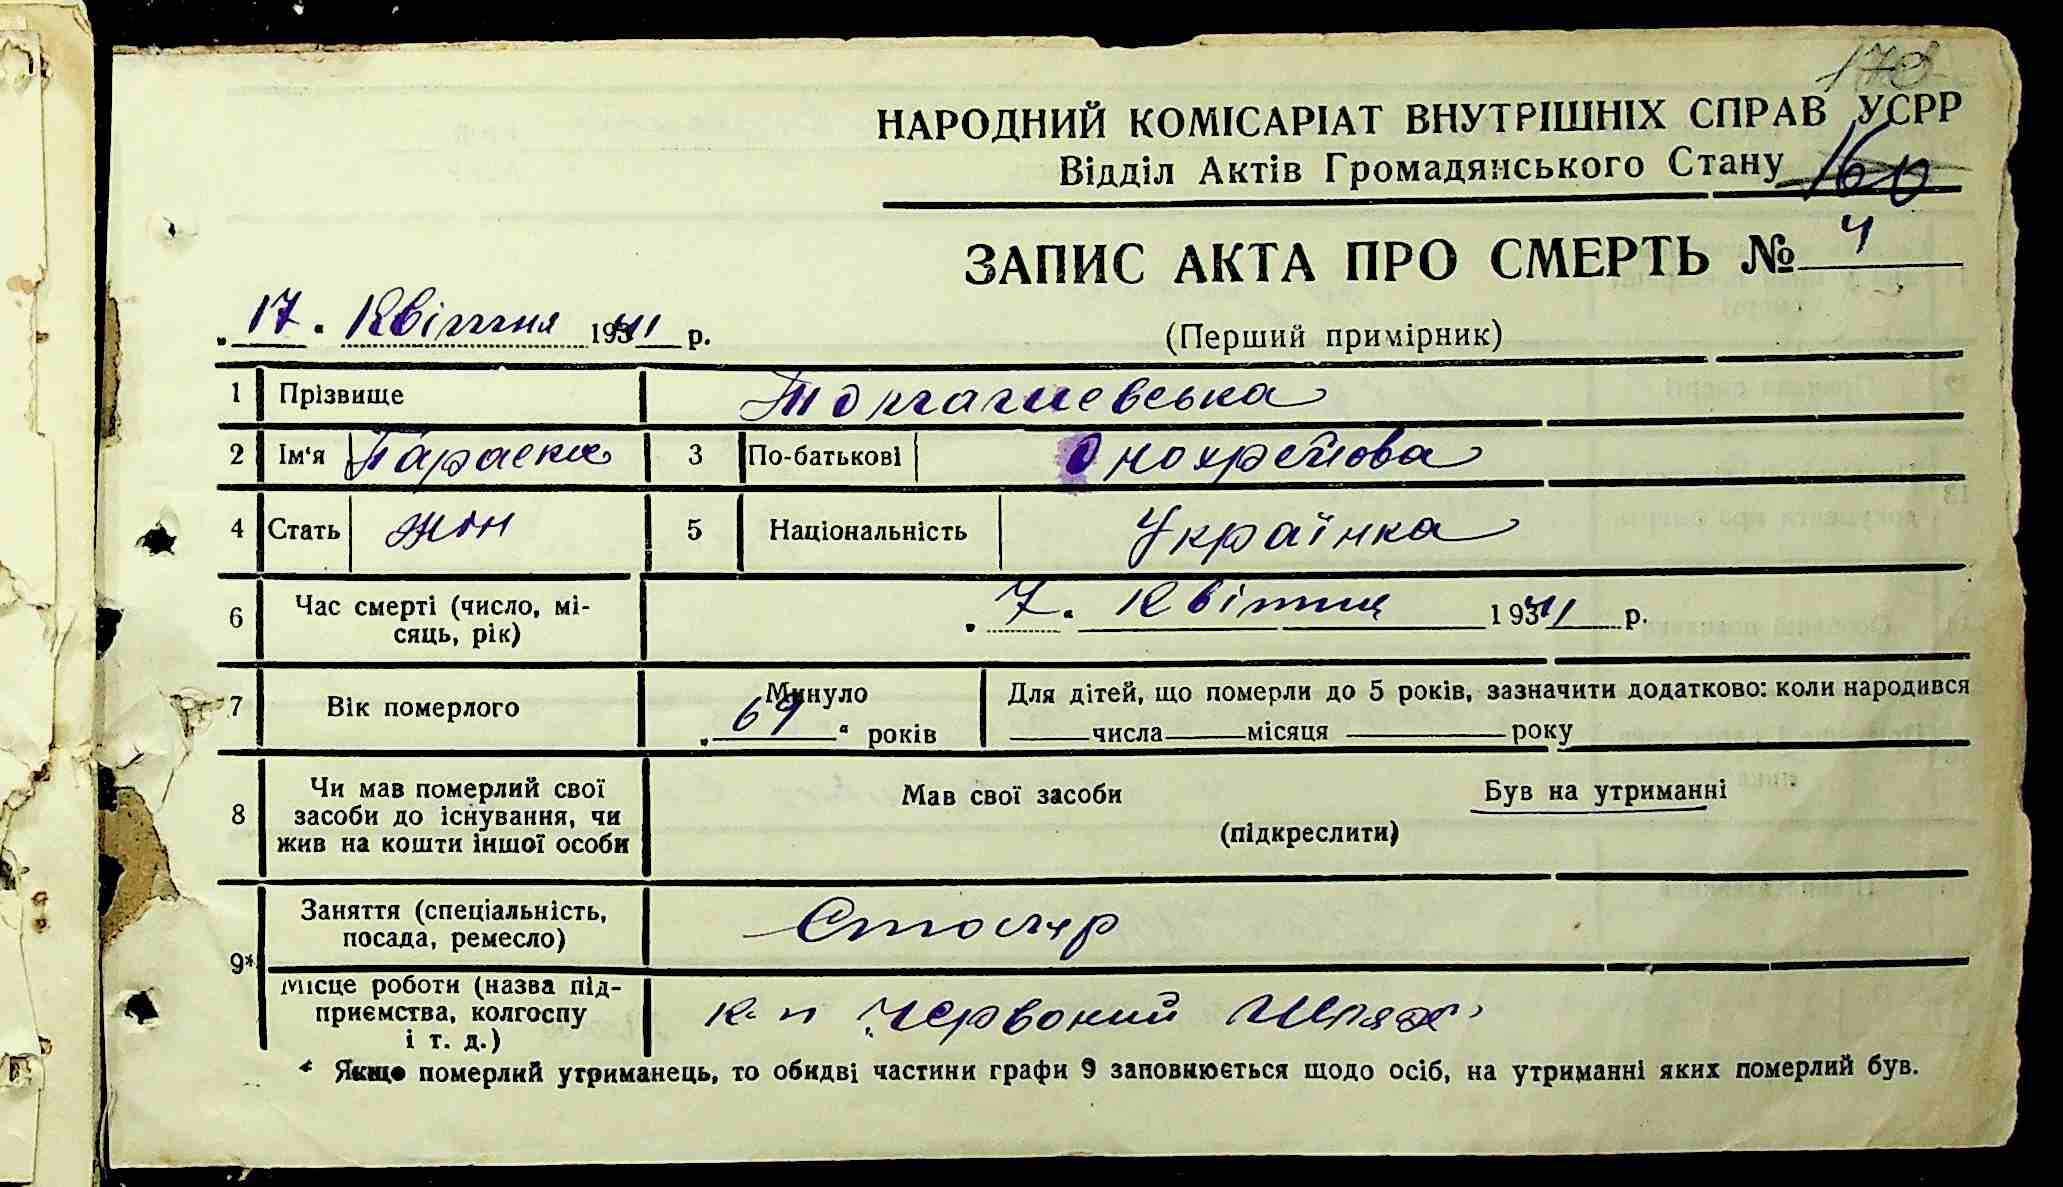 178
НАРОДНИЙ КОМІСАРІАТ ВНУТРІШНІХ СПРАВ УСРР
Відділ Актів Громадянського Стану 160
ЗАПИС АКТА ПРО СМЕРТЬ № 4
„ 17 “ Квітня 1941 р.
(Перший примірник)
1 Прізвище
2 Ім'я Параска 3 По-батькові
4 Стать жін 5 Національність Українка
6 Час смерті (число, мі-
сяць, рік) „ 7 “ Квітня 1941 р.
7 Вік померлого Минуло „ 69 “ років Для дітей, що померли до 5 років, зазначити додатково: коли народився
числа місяця року
8 Чи мав померлий свої
засоби до існування, чи
жив на кошти іншої особи
Мав свої засоби Був на утриманні
(підкреслити)
9* Заняття (спеціальність,
посада, ремесло) Столяр
Місце роботи (назва під-
приємства, колгоспу
і т. д.) к-п Червоний Шлях
* Якщо померлий утриманець, то обидві частини графи 9 заповнюється щодо осіб, на утриманні яких померлий був.